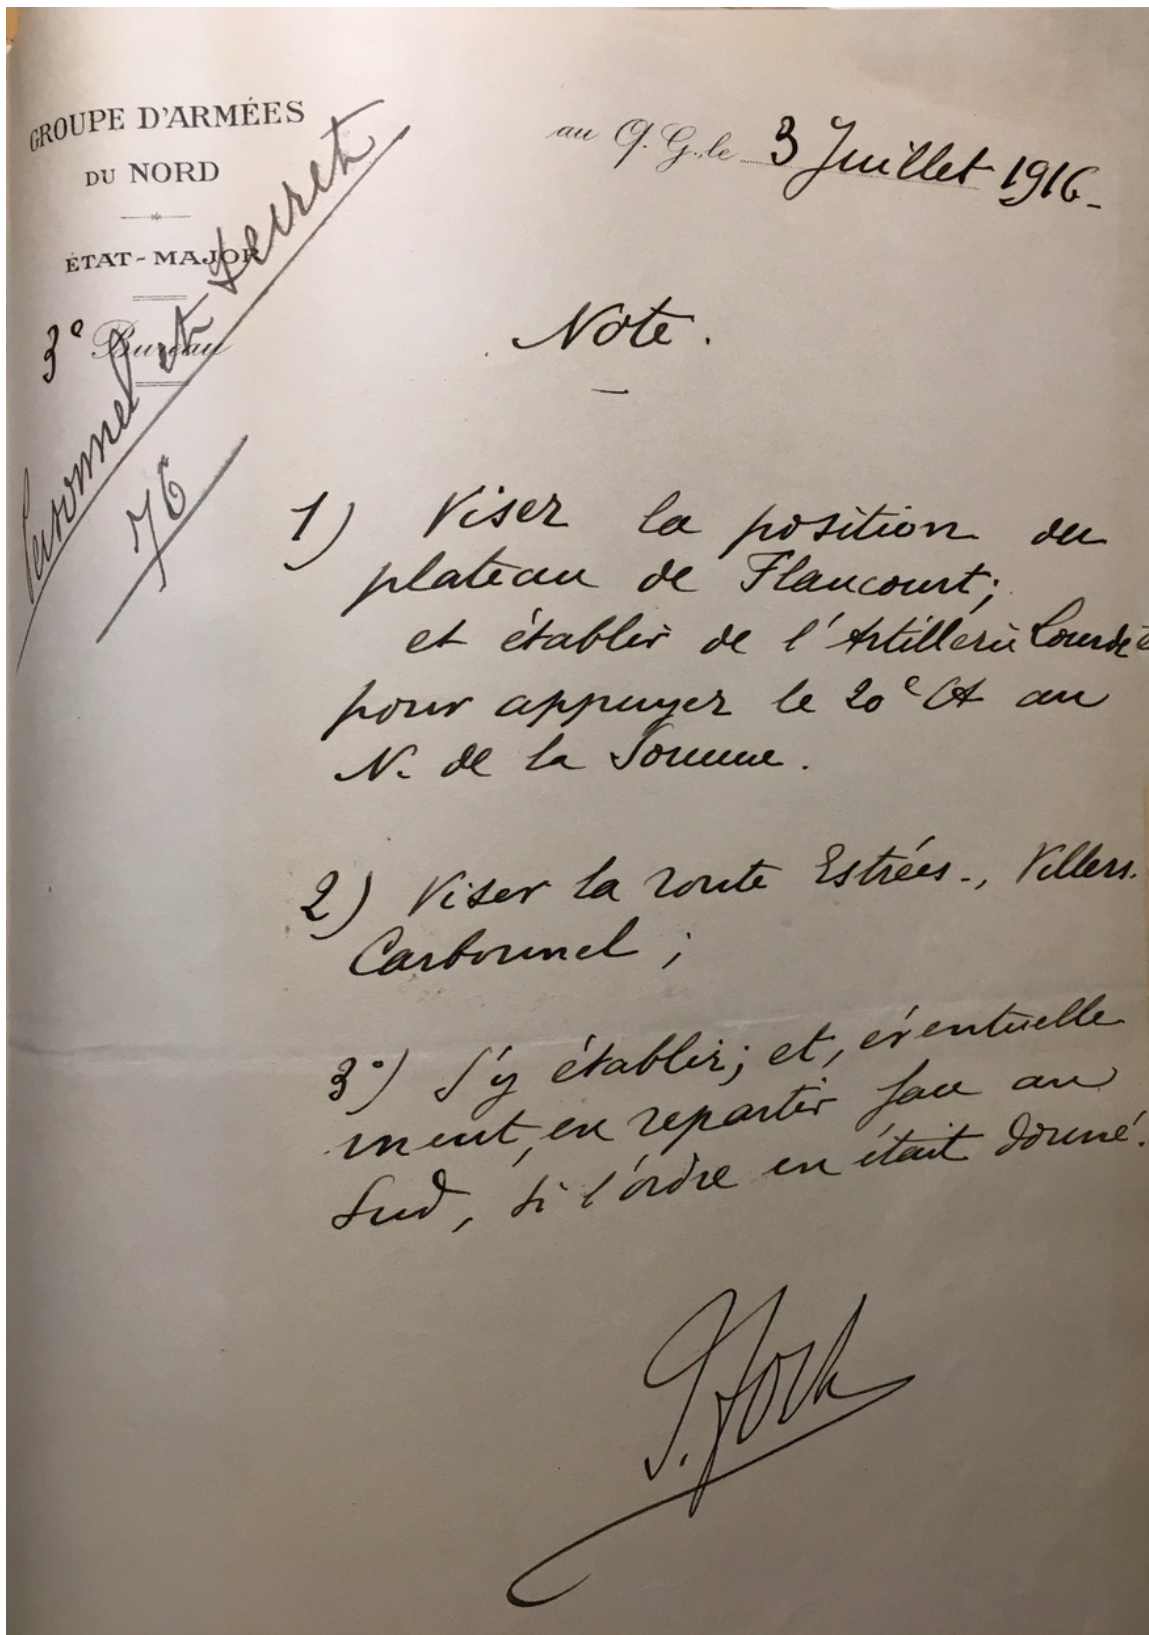 GROUPE D'ARMÉES
DU NORD
ÉTAT-MAJOR
3e Bureau
Personnel et secret
76
au Q. G., le 3 Juillet 1916.
Note.
1) Viser la position du
plateau de Flaucourt;
et établir de l'Artillerie Lourde
pour appuyer le 20e CA au
N. de la Somme.
2) Viser la route Estrées-, Villers.
Carbonnel ;
3°) S'y établir; et, éventuelle
ment, en repartir face au
Sud, si l'ordre en était donné.
f. foch